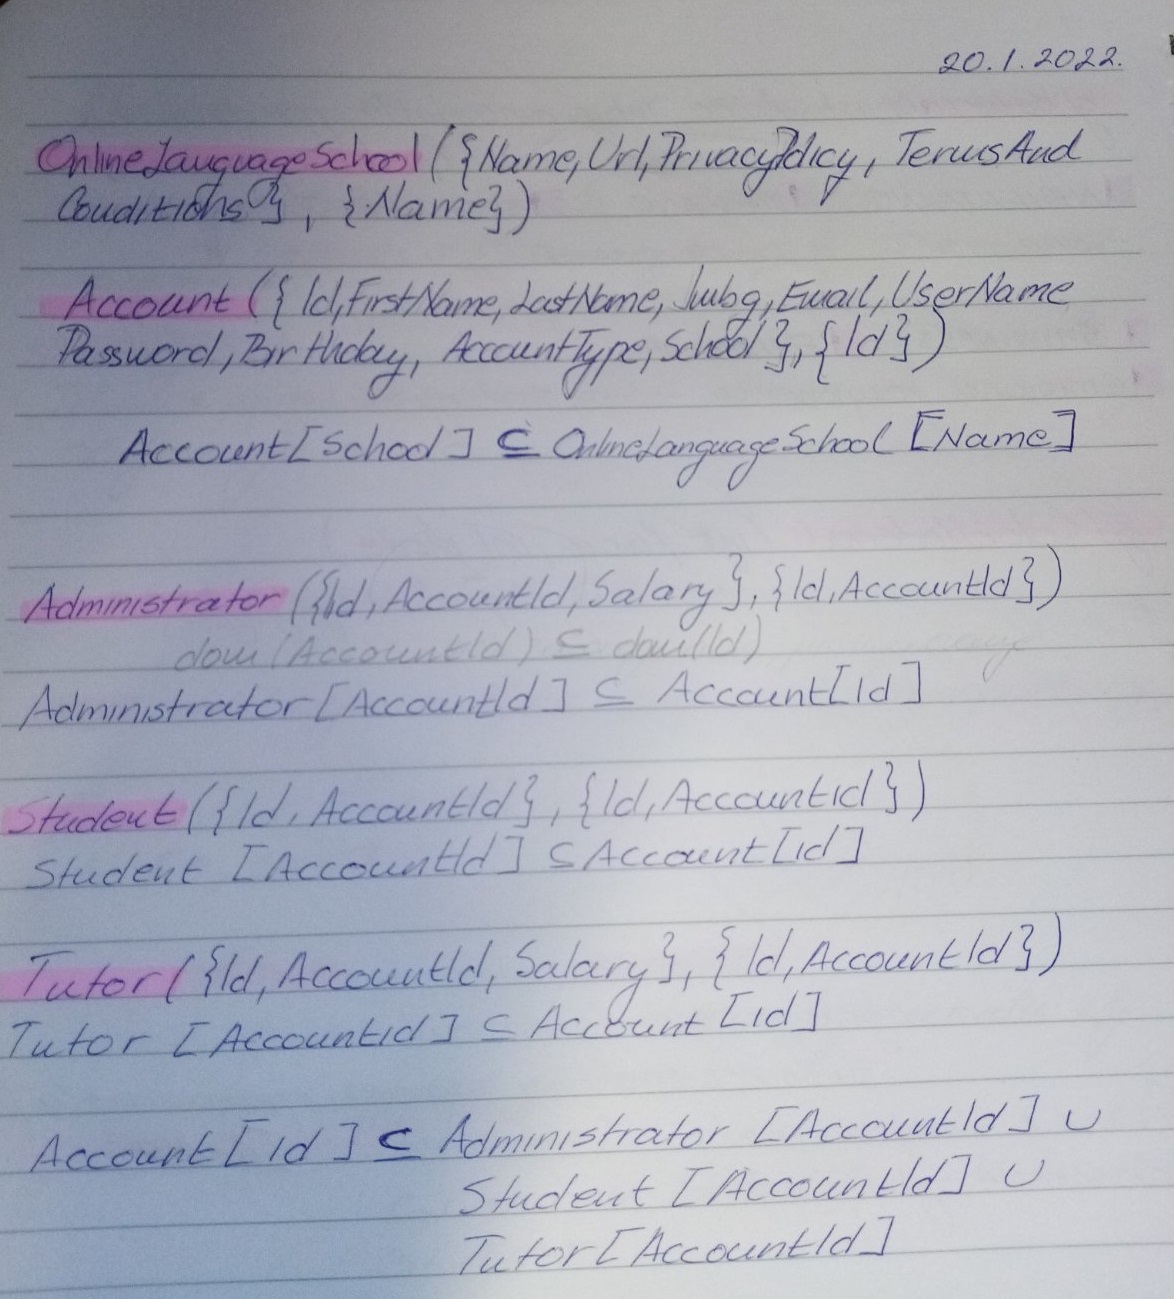 20.1.2022.
OnlineLanguageSchool ({Name, Url, PrivacyPolicy, TermsAnd
Conditions}, {Name})
Account ({Id, FirstName, LastName, Jmbg, Email, UserName
Password, Birthday, AccountType, School}, {Id})
Account[School] ⊆ OnlineLanguageSchool [Name]
Administrator ({Id, AccountId, Salary}, {Id, AccountId})
dom(AccountId) ⊆ dom(Id)
Administrator [AccountId] ⊆ Account[Id]
Student ({Id, AccountId}, {Id, AccountId})
Student [AccountId] ⊆ Account [id]
Tutor ({Id, AccountId, Salary}, {Id, AccountId})
Tutor [Accountid] ⊆ Account [id]
Account [id] ⊆ Administrator [AccountId] ∪
Student [AccountId] ∪
Tutor [AccountId]